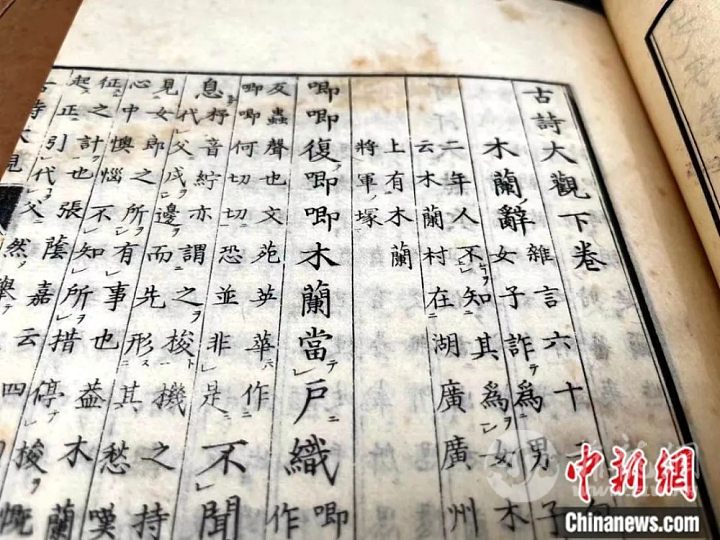 古詩大觀下卷
木蘭辭
雜言六十一句
女子詐爲男子
二年人不知其爲女木
云木蘭村在湖廣廣州
上有木蘭
將軍塚
唧唧復唧唧木蘭當戶織
唧
作
蟲聲也文苑英華作
唧唧何切切恐並非是
不聞
息
杼音紵亦謂之梭機之持
代父戍邊而先形其愁嘆
見女郎之所有事也益木蘭
心中懊惱不知所措停梭慨
征之計也張蔭嘉云四
起正引代父然舉
古詩大
中新网
Chinanews.com